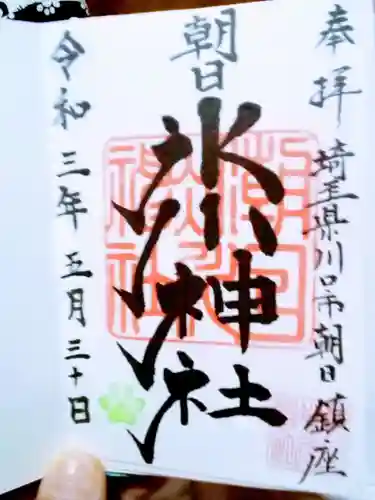 奉拝 埼玉県川口市朝日鎮座
朝日
氷川神社
令和三年五月三十日